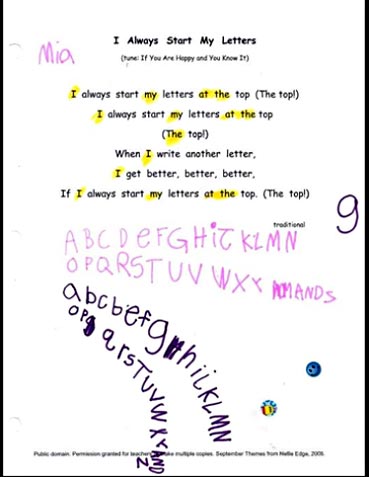 I Always Start My Letters
Mia
(tune: If You Are Happy and You Know It)
I always start my letters at the top (The top!)
I always start my letters at the top
(The top!)
When I write another letter,
I get better, better, better,
If I always start my letters at the top. (The top!)
traditional
g
ABCDeFGHiJKLMN
OPQRSTUVWXY
abcbefg hiJKLMN
OPg qrsTUVWXYAND
Z
Public domain. Permission granted for teachers to make multiple copies. September Themes from Nellie Edge, 2009.